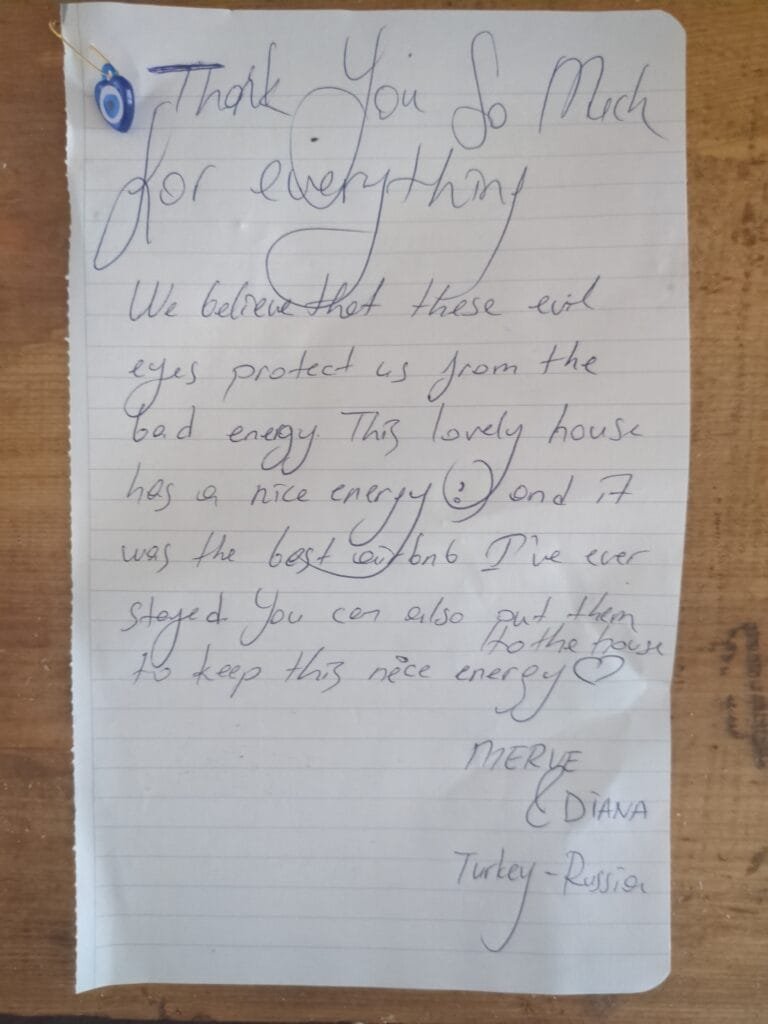 Thank You So Much
for everything
We believe that these evil
eyes protect us from the
bad energy. This lovely house
has a nice energy :) and it
was the best airbnb I've ever
stayed You can also put them
to the house
to keep this nice energy ♡
MERVE
& DiANA
Turkey - Russia